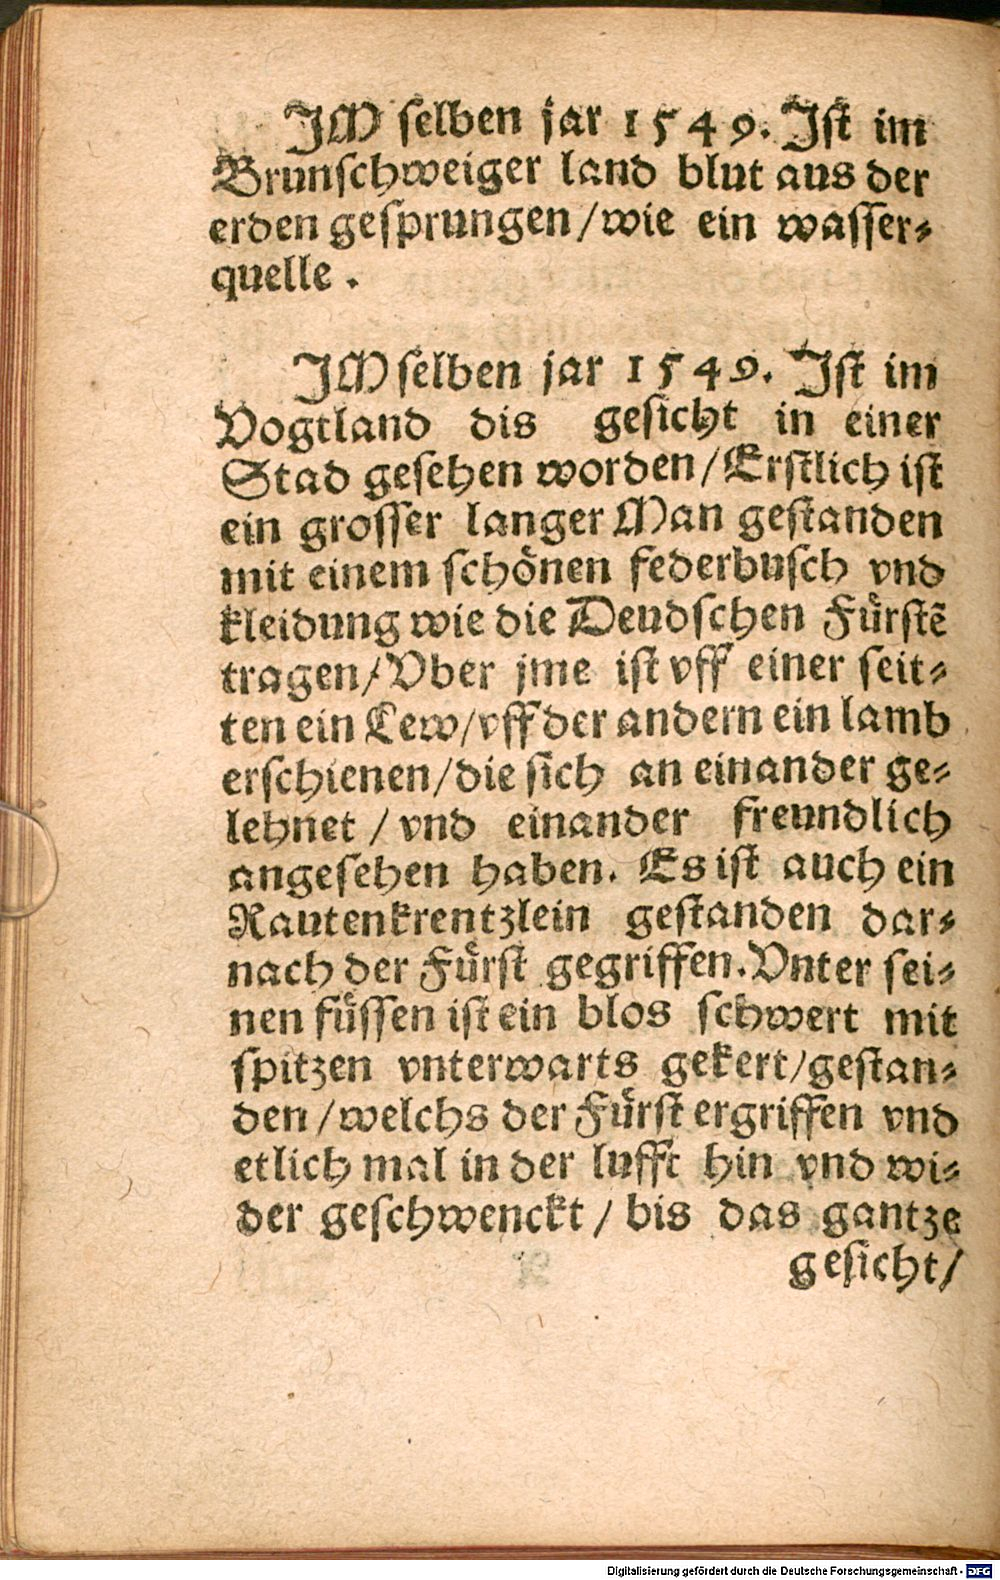 JM selben jar 1549. Ist im
Brunschweiger land blut aus der
erden gesprungen/wie ein wasser⸗
quelle.
JM selben jar 1549. Ist im
Vogtland dis gesicht in einer
Stad gesehen worden/Erstlich ist
ein grosser langer Man gestanden
mit einem schönen federbusch vnd
kleidung wie die Deudschen Fürstẽ
tragen/Vber jme ist vff einer seit⸗
ten ein Lew/vff der andern ein lamb
erschienen/die sich an einander ge⸗
lehnet/vnd einander freundlich
angesehen haben. Es ist auch ein
Rautenkrentzlein gestanden dar⸗
nach der Fürst gegriffen. Vnter sei⸗
nen füssen ist ein blos schwert mit
spitzen vnterwarts gekert/gestan⸗
den/welchs der Fürst ergriffen vnd
etlich mal in der lufft hin vnd wi⸗
der geschwenckt/bis das gantze
gesicht/
Digitalisierung gefördert durch die Deutsche Forschungsgemeinschaft - DFG